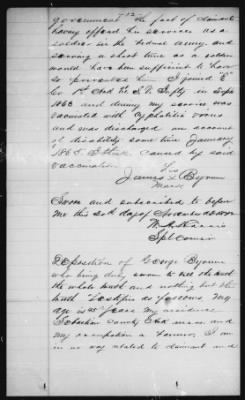 -12-
government the fact of claimant
having offered his services as a
soldier in the Federal Army, and
serving a short time as a soldier
would have been sufficient to have
so I joined "E"
Co 1st Ind in Sept
1863 and during my service was
vaccinated with syphilitic virus
and was discharged on account
of disability some time January
1865 I think caused by said
vaccination
James Byrum
Mark
Sworn and subscribed to before
me this 20th day of
W. A.
Spl Comr
Deposition of George Byrum
who being duly sworn to tell the truth
the whole truth and nothing but the
truth testifies as follows, My
age is years My residence
Sebastian County Ark
and my occupation a farmer, I am
in no way related to claimant and